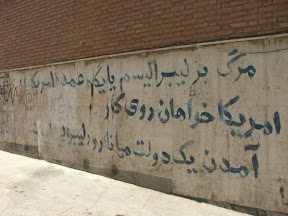 مرگ بر لیبرالیسم پایگاه عمده امریکا
امریکا خواهان روی کار
آمدن یک دولت میانه رو و لیبرال است